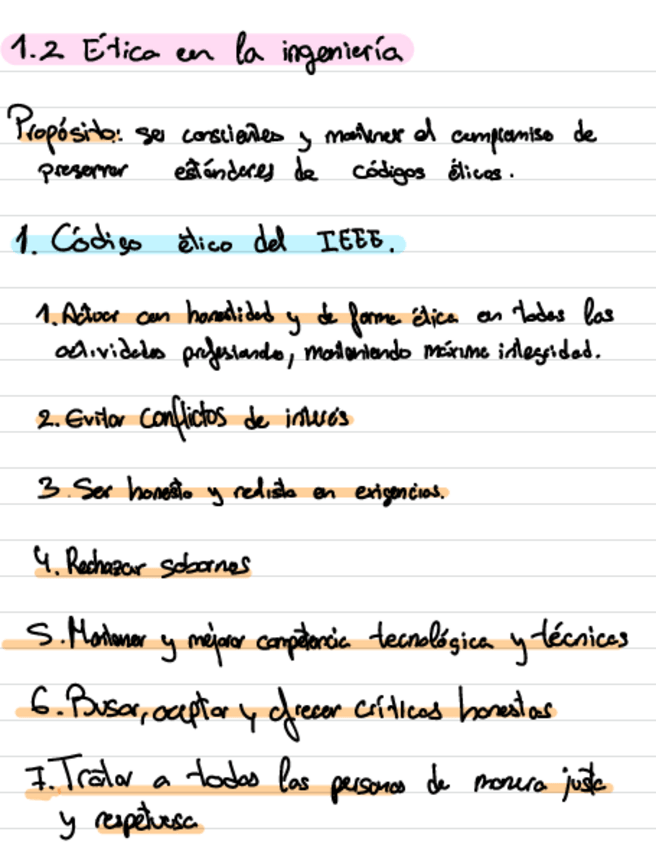 1.2 Ética en la ingeniería
Propósito: ser conscientes y mantener el compromiso de
preservar estándares de códigos éticos.
1. Código ético del IEEE.
1. Actuar con honestidad y de forma ética en todas las
actividades profesionales, manteniendo máxima integridad.
2. Evitar conflictos de interés
3. Ser honesto y realista en exigencias.
4. Rechazar sobornos
5. Mantener y mejorar competencia tecnológica y técnicas
6. Buscar, aceptar y ofrecer críticas honestas
7. Tratar a todas las personas de manera justa
y respetuosa